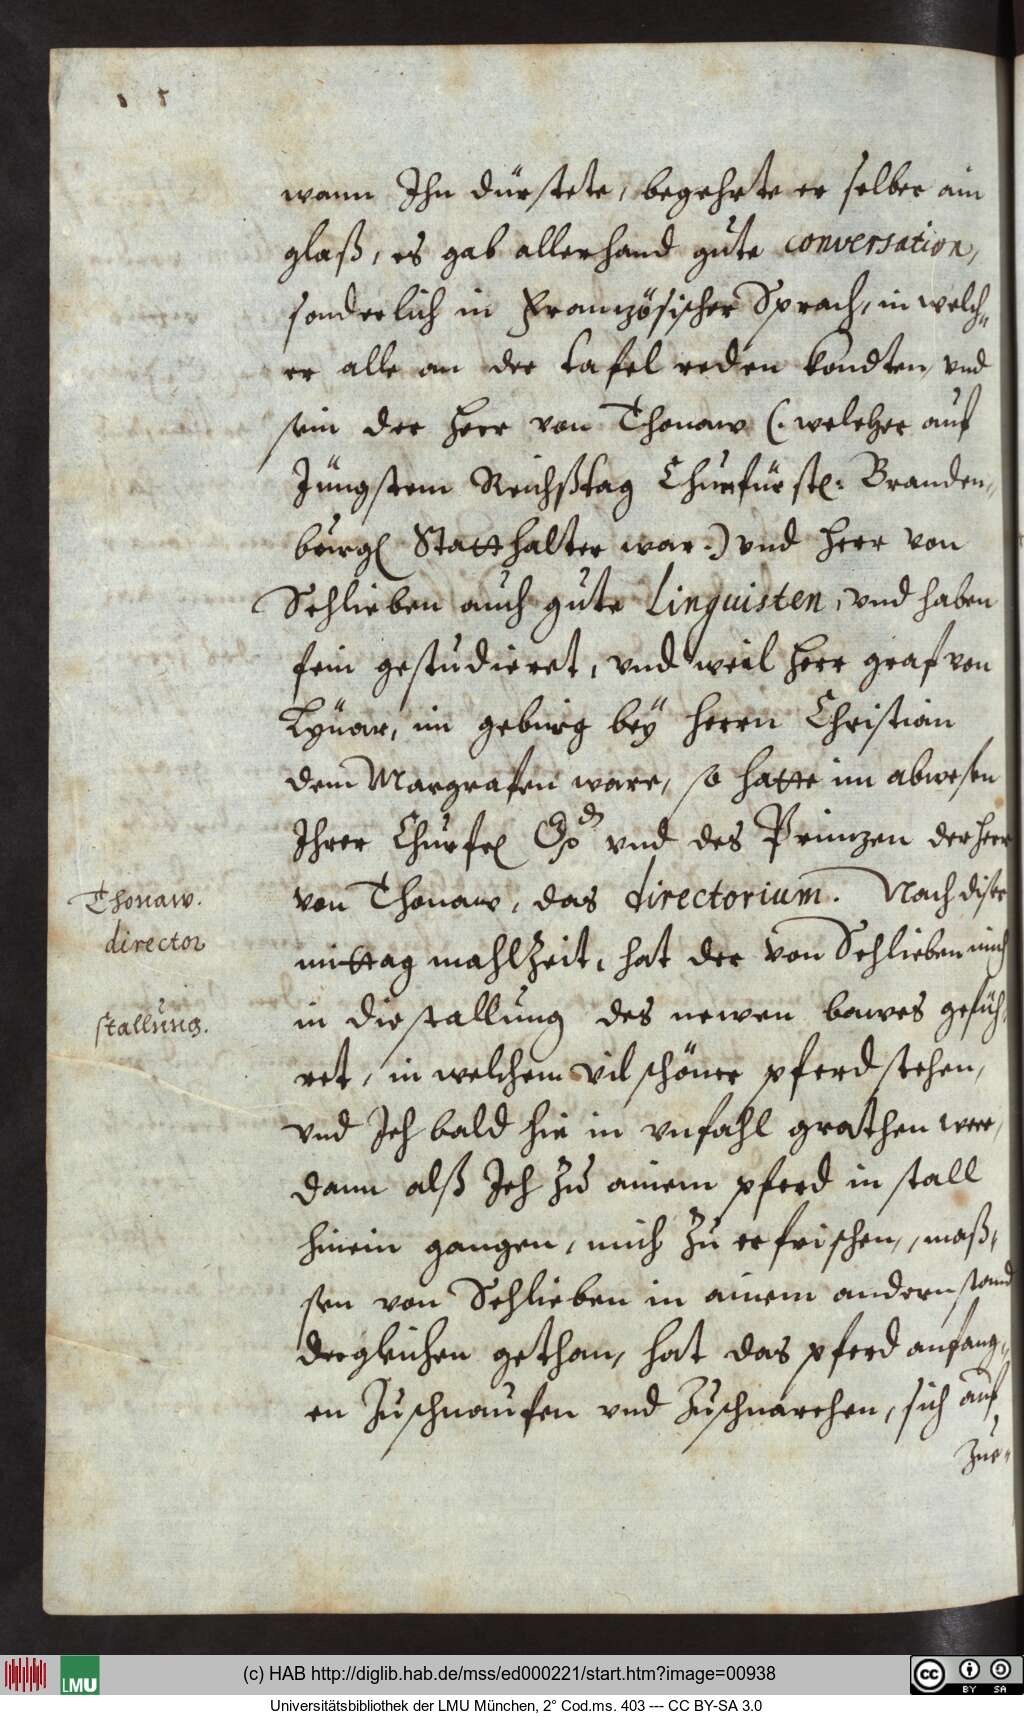 wann Ihn dürstete, begehrte er selber ain
glaß, es gab allerhand gute conversation,
sonderlich in Französischer Sprach, in welch„
er alle an der tafel reden kondten, vnd
sein der Herr von Thonaw (. welcher auf
Jüngstem Reichßtag Churfürstl: Branden„
burgl Statthalter war.) vnd Herr von
Schlieben auch gute Linguisten, vnd haben
fein gestudieret, vnd weil Herr graf von
Lÿnar, im gebürg beÿ Herrn Christian
dem Margrafen ware, so hatte im abwesen
Ihrer Churfl Gd vnd des Prinzen der Herr
von Thonaw, das directorium. Nach diser
mittag mahlzeit, hat der von Schlieben mich
in die stallung des newen bawes gefüh„
ret, in welchem vil schöner pferd stehen,
vnd Ich bald hie in vnfahl grathen were,
dann alß Ich zu ainem pferd in stall
hinein gangen, mich zu erfrischen, maß„
sen von Schlieben in ainem andern stand
dergleichen gethan, hat das pferd anfang„
en zuschnaufen vnd zuschnarchen, sich auf
zue„
Thonaw.
director
stallung.
(c) HAB http://diglib.hab.de/mss/ed000221/start.htm?image=00938
LMU
BY SA
Universitätsbibliothek der LMU München, 2° Cod.ms. 403 --- CC BY-SA 3.0